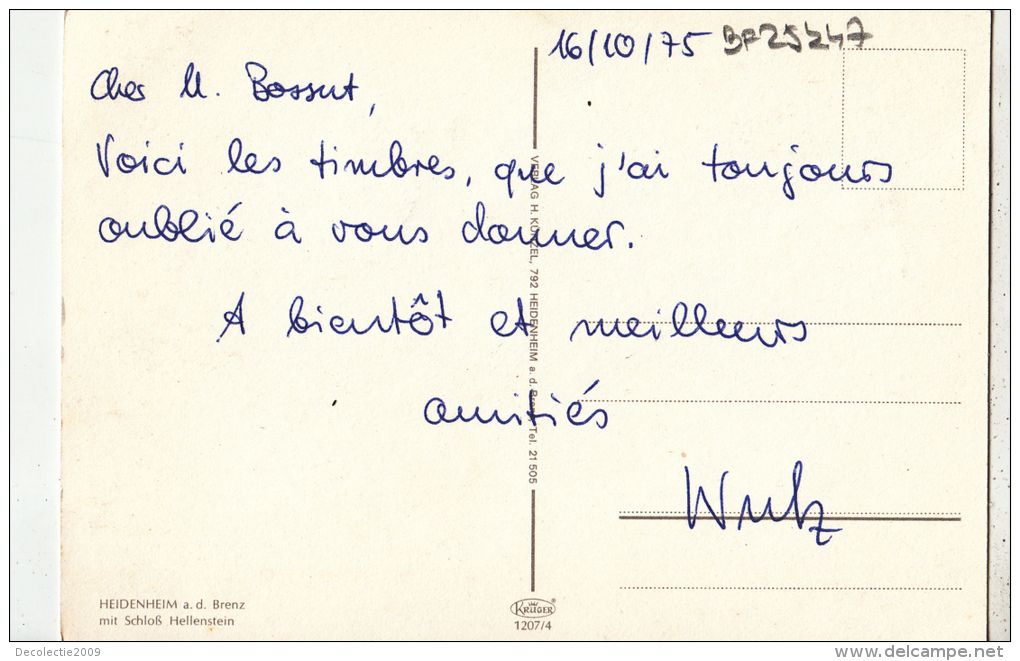 16/10/75 BF25247
Cher M. Bossut,
Voici les timbres, que j'ai toujours
oublié à vous donner.
A bientôt et meilleurs
amitiés
VERLAG H. KÜNZEL, 792 HEIDENHEIM a. d. Brenz, Tel. 21 505
HEIDENHEIM a. d. Brenz
mit Schloß Hellenstein
KRÜGER
1207/4
Decolectie2009
www.delcampe.net